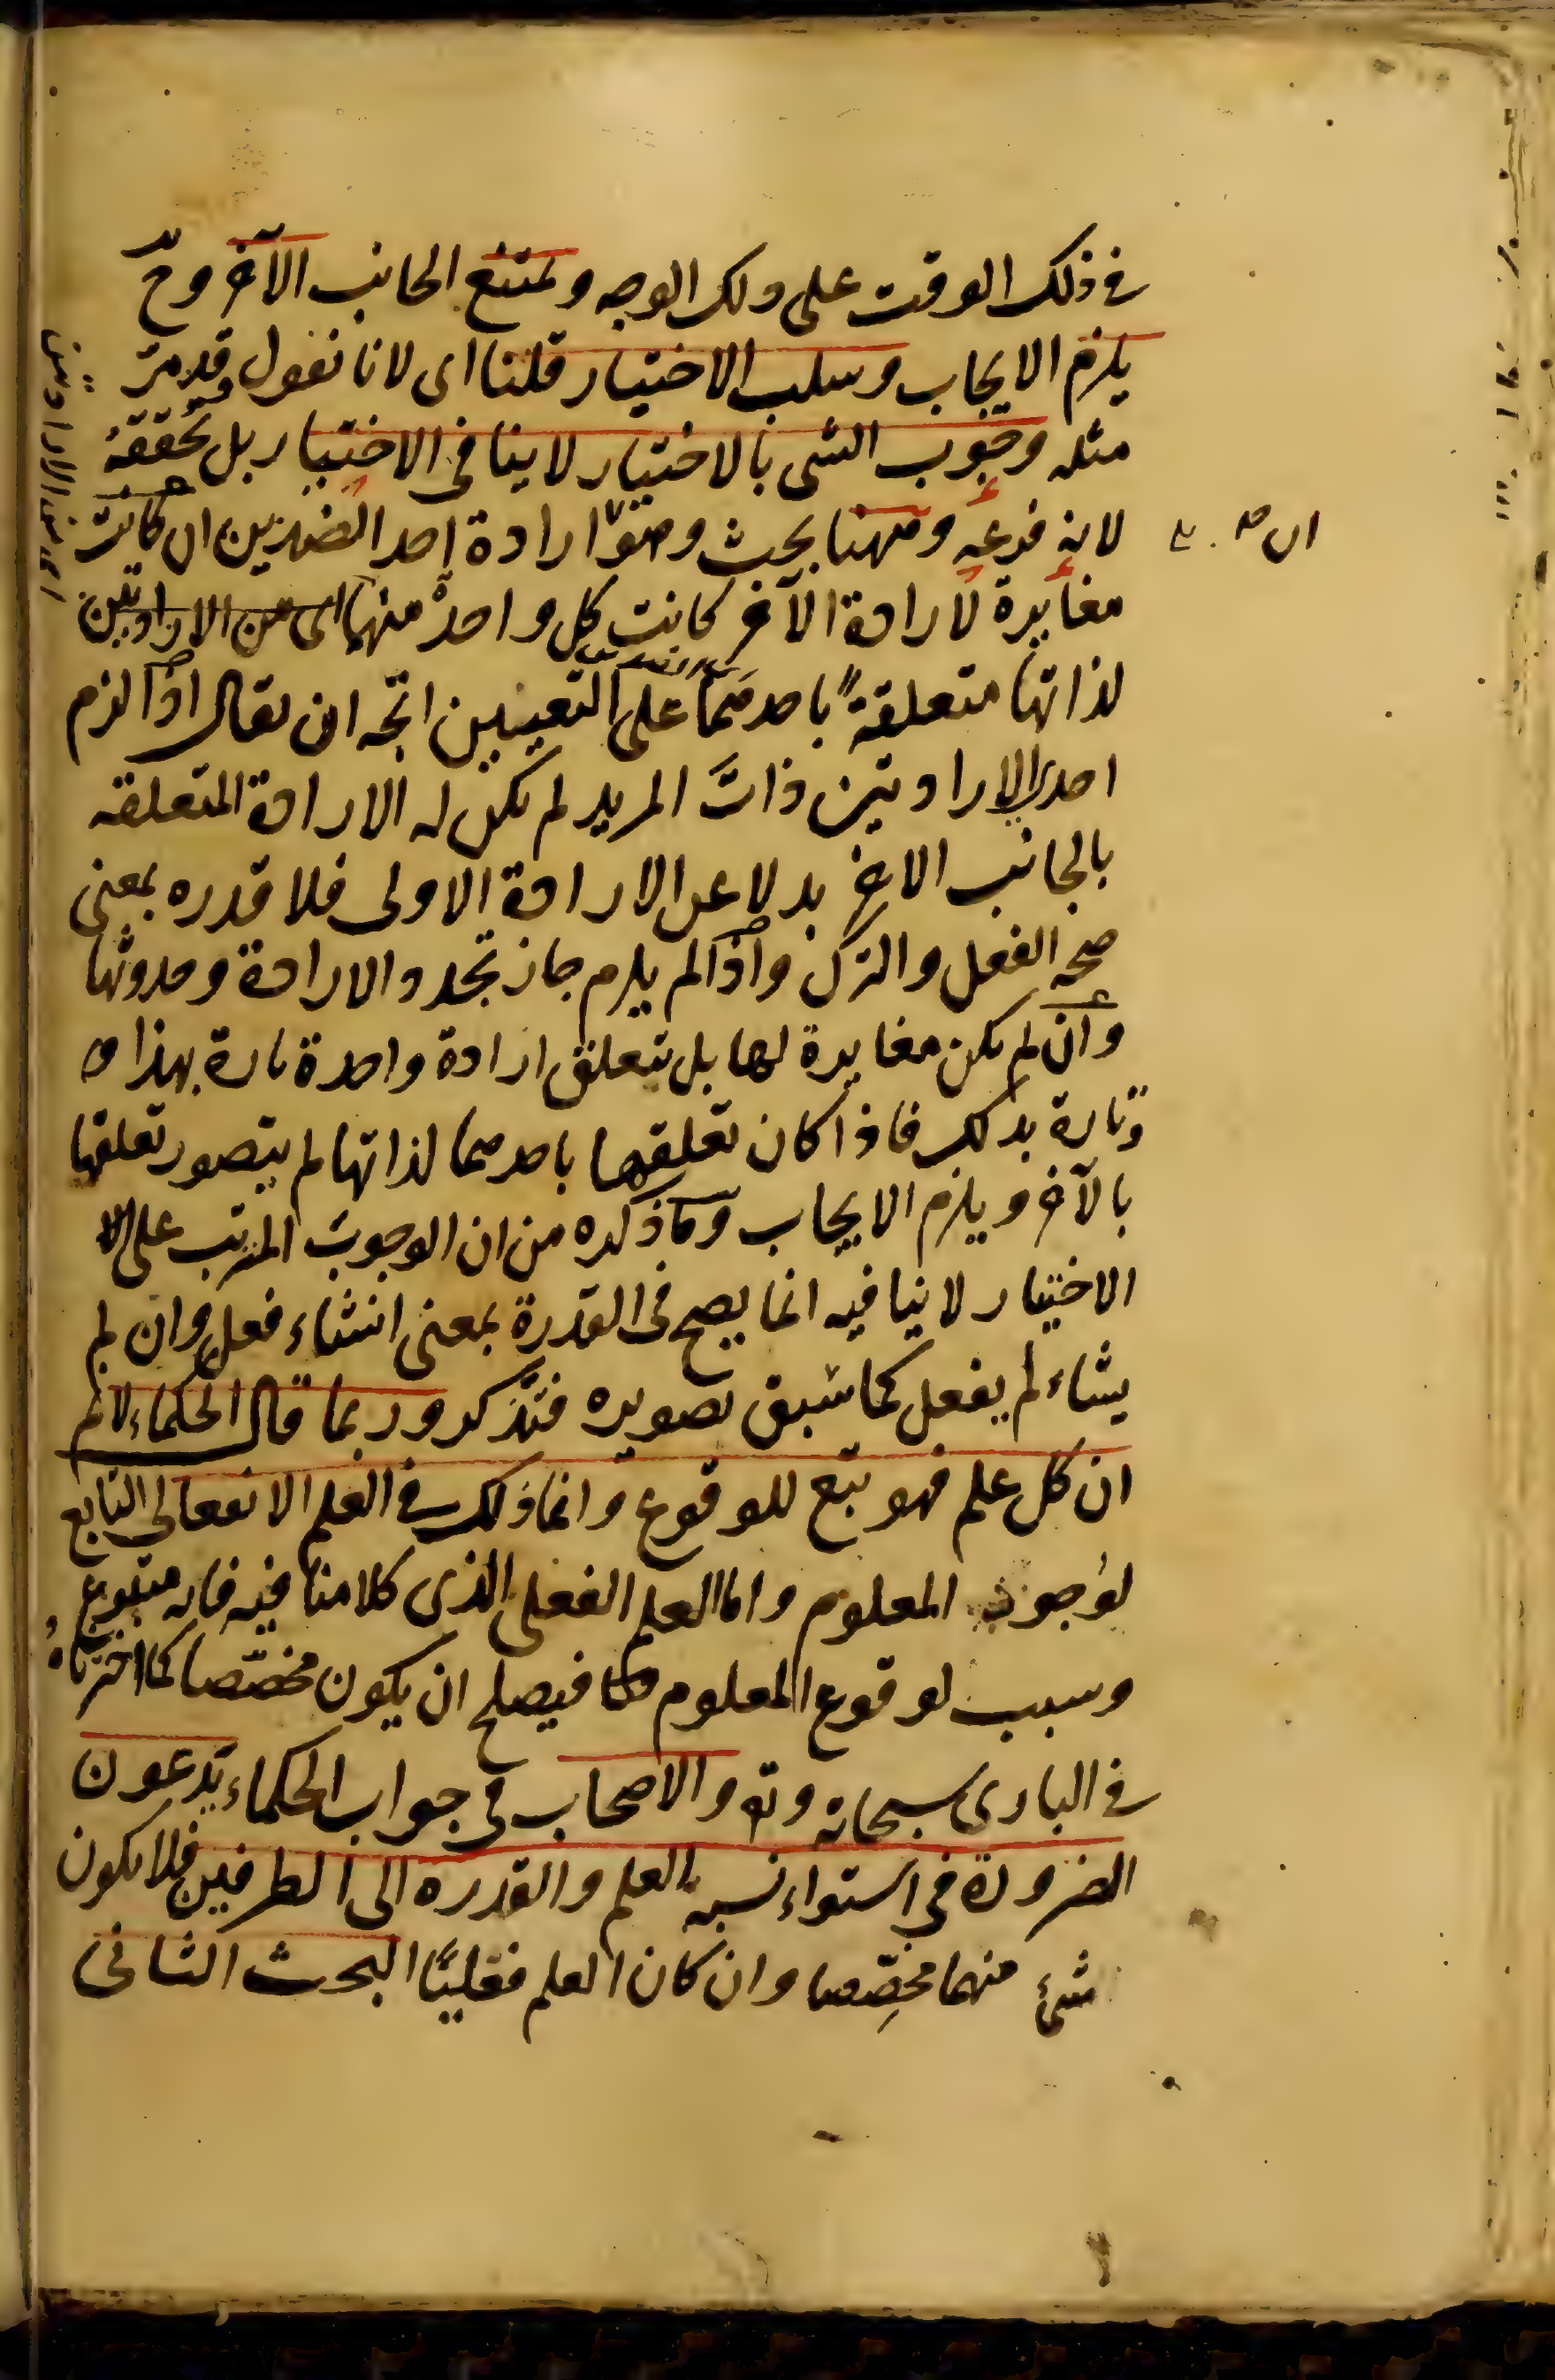 في ذلك الوقت على ذلك الوجه ويمتنع الجانب الآخر وح
يلزم الايجاب وسلب الاختيار قلنا اى لانا نقول قد مر
مثله وجوب الشى بالاختيار لا ينافى الاختيار بل يحققه
لانه فرعه وههنا بحث وهو ارادة احد الضدين ان كانت
مغايرة لارادة الآخر كانت كل واحدة منهما اى من الارادتين
لذاتها متعلقة باحدهما على التعيين اتجه ان يقال اذا لزم
احدى الارادتين ذات المريد لم يكن له الارادة المتعلقه
بالجانب الاخر بدلا عن الارادة الاولى فلا قدره بمعنى
صحه الفعل والترك واذا لم يلزم جاز تجدد الارادة وحدوثها
وان لم يكن مغايرة لها بل يتعلق ارادة واحدة تارة بهذا
وتارة بذلك فاذا كان تعلقها باحدهما لذاتها لم يتصور تعلقها
بالآخر ويلزم الايجاب وما ذكره من ان الوجوب المترتب على
الاختيار لا ينافيه انما يصح فى القدرة بمعنى انشاء فعل وان لم
يشاء لم يفعل كما سبق تصويره فتذكر وربما قال الحكماء لانم
ان كل علم فهو تبع للوقوع وانما ذلك في العلم الانفعالى التابع
لوجود المعلوم واما العلم الفعلى الذى كلامنا فيه فانه متبوع
وسبب لوقوع المعلوم فيصلح ان يكون مخصصا كما اخترناه
في البارى سبحانه وتع والاصحاب فى جواب الحكماء يدعون
الضرورة فى استواء نسبه العلم والقدره الى الطرفين فلا يكون
شئ منهما مخصصا وان كان العلم فعليًا البحث الثانى
اى من الارادتين